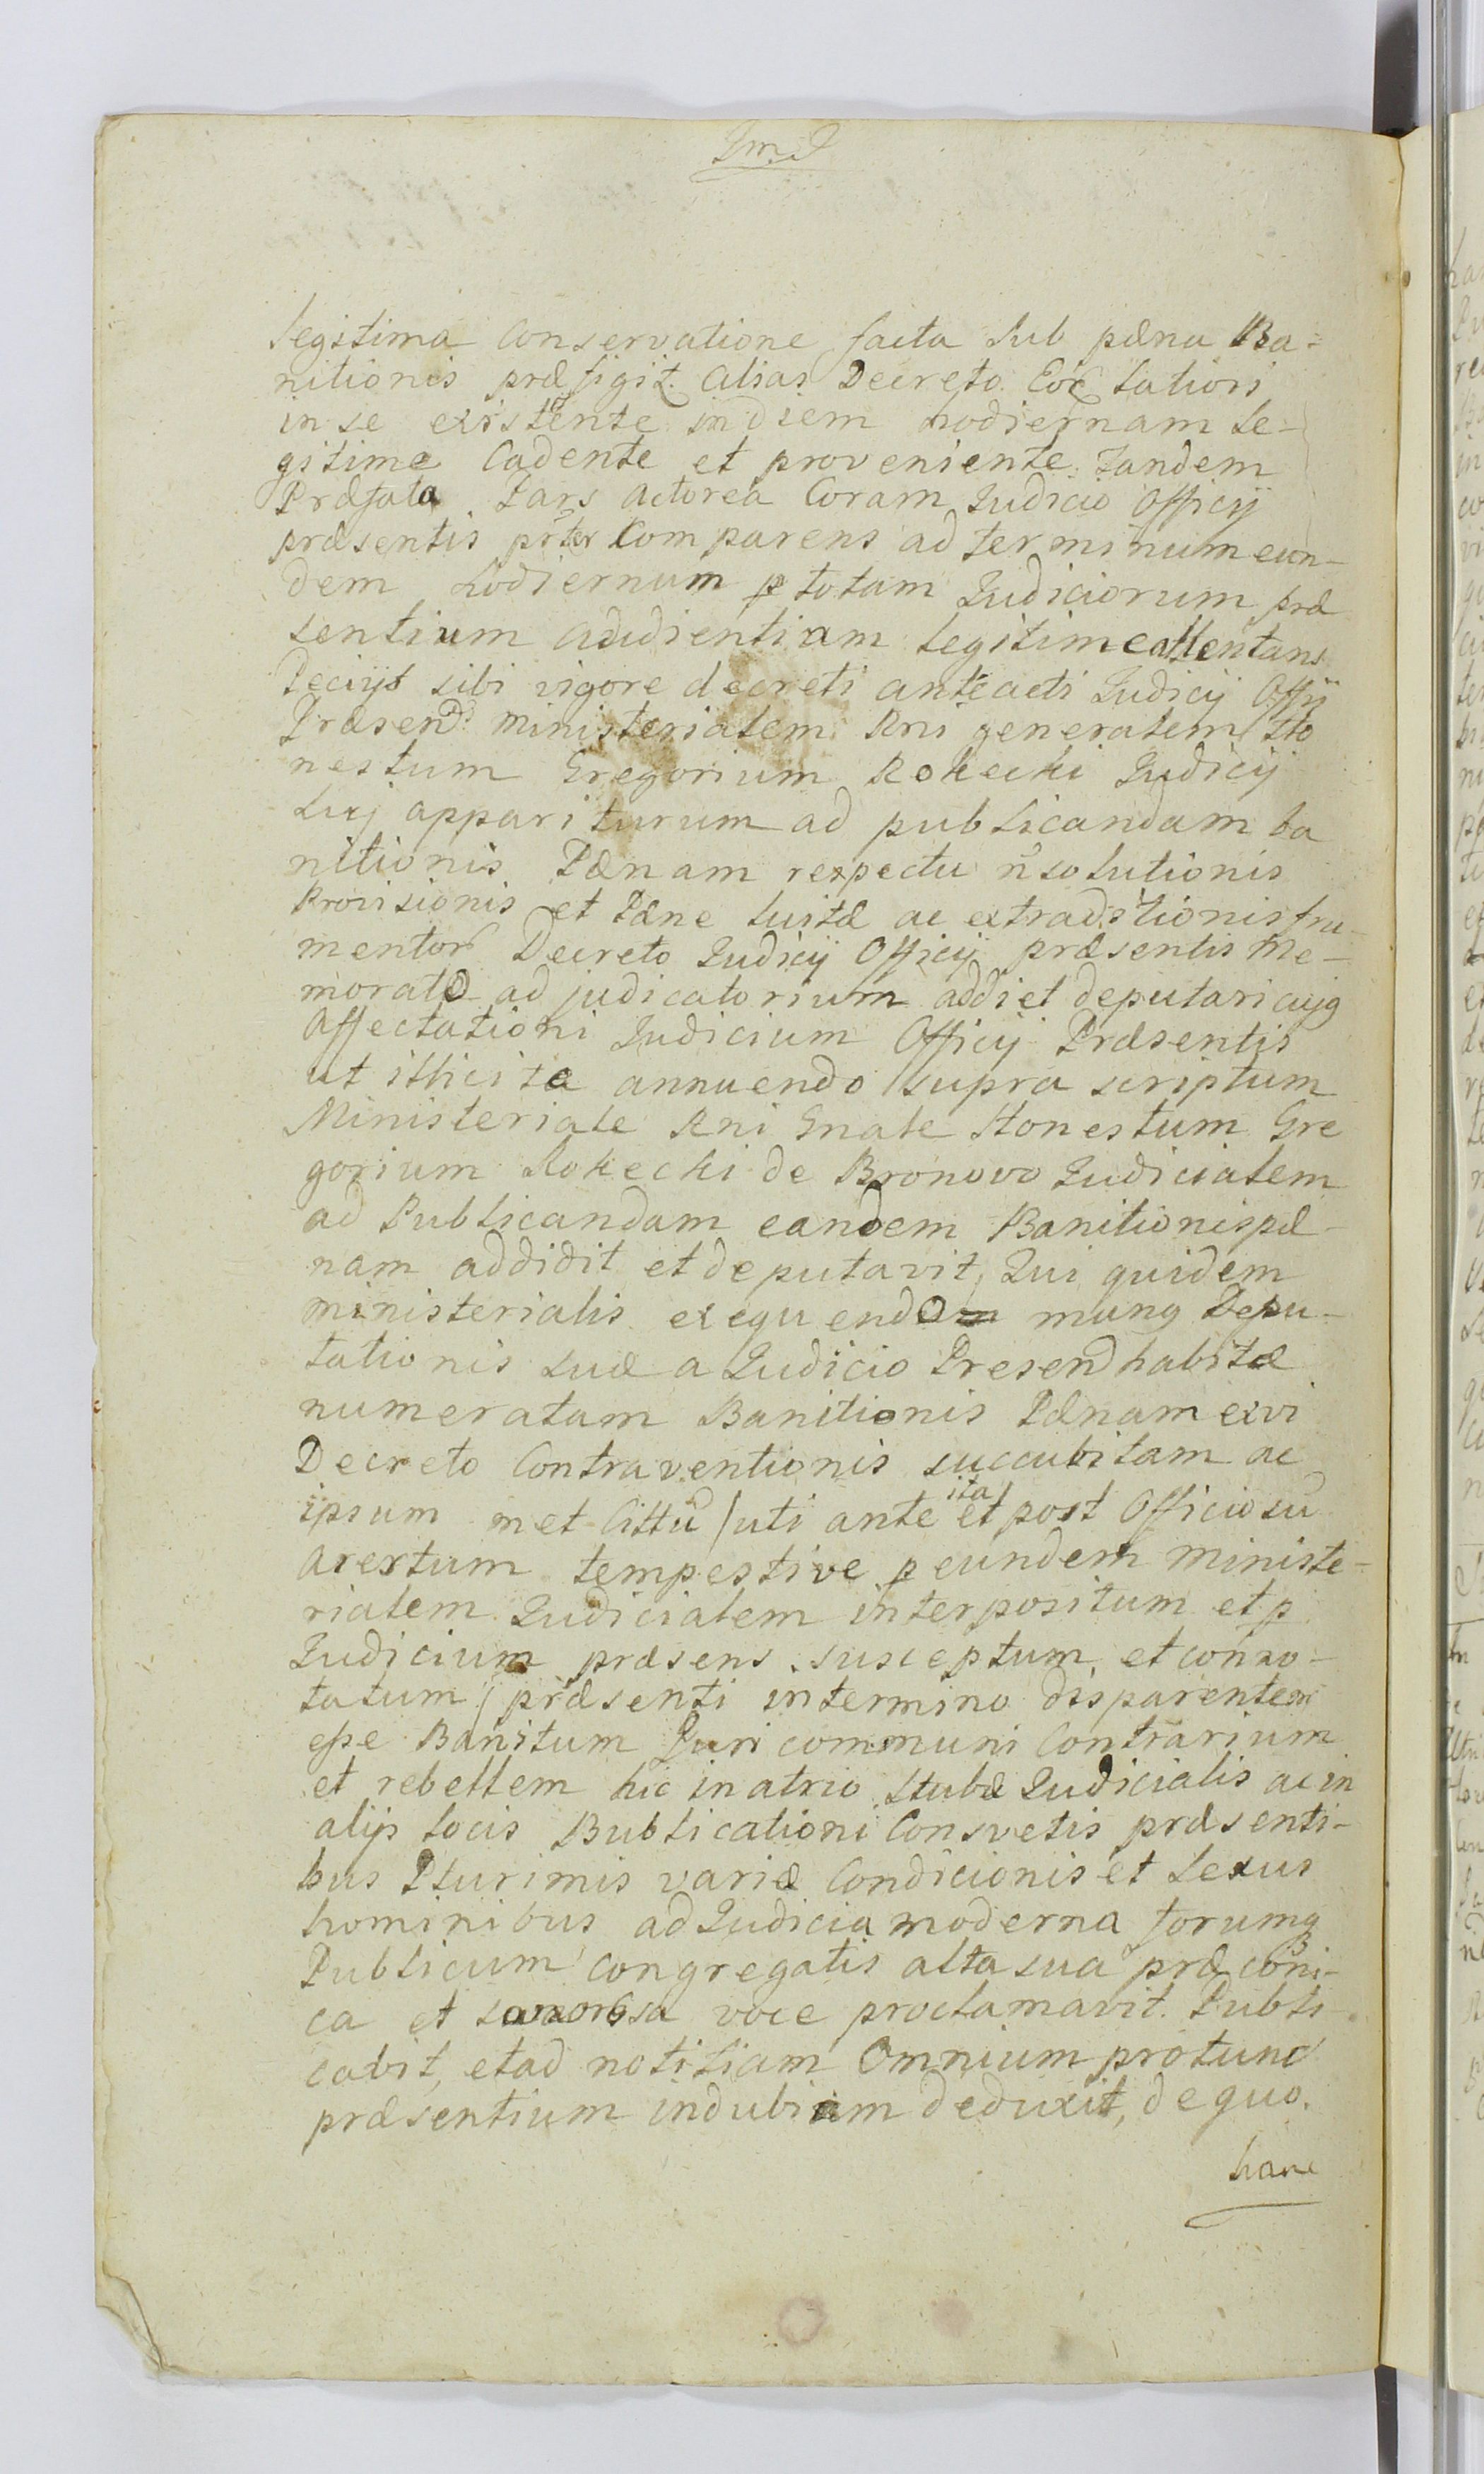 legitima Conservatione facta Sub pæna Ba=
nitionis præfigit. Alias Decreto Eoꝶ latiori
in se existente in diem hodiernam le-
gitime Cadente et proveniente. Tandem
Præfata Pars Actorea Coram Judicio Officij
præsentis pñter Comparens ad terminum eun-
dem hodiernum ꝑ totam Judiciorum præ
sentium Audientiam legitime attentans
Petijt sibi vigore decreti anteacti Judicij Offij
Præsend. Ministerialem Rni generalem Ho
nestum Gregorium Rokecki Judicij
huj appariturum ad publicandam ba
nitionis Pænam respectu ñ solutionis
Provisionis et Pæne luitæ ac extraditionis fru-
mentor Decreto Judicij Officij præsentis Me-
morato ad judicatorium addi et deputari cujꝗ
Affectationi Judicium Officij Præsentis
ut illicita annuendo supra scriptum
Ministeriale Rni Gnale Honestum Gre
gorium Rokecki de Bronovo Judicialem
ad Publicandam eandem Banitionis pæ-
nam addidit et deputavit, Qui quidem
ministerialis exequendo munꝗ Depu-
tationis suæ a Judicio Presend habitæ
numeratam Banitionis Pænam exvi
Decreto Contraventionis succubitam ac
ipsum met Cittũ /uti ante ita et post Officiosũ
Arestum tempestive ꝑ eundem Ministe-
rialem Judicialem interpositum et ꝑ
Judicium præsens susceptum et conno-
tatum / præsenti in termino disparentem
esse Banitum Juri communi Contrarium
et rebellem hic in atrio Stubæ Judicialis ac in
alijs locis Bublicationi Consvetis præsenti-
bus Plurimis variæ Condicionis et Sexus
hominibus ad Judicia moderna forumꝗ
Publicum congregatis alta sua præconi-
ca et sonorosa voce proclamavit. Publi
cavit, et ad notitiam Omnium pro tunc
præsentium indubiam deduxit, de quo.
hanc